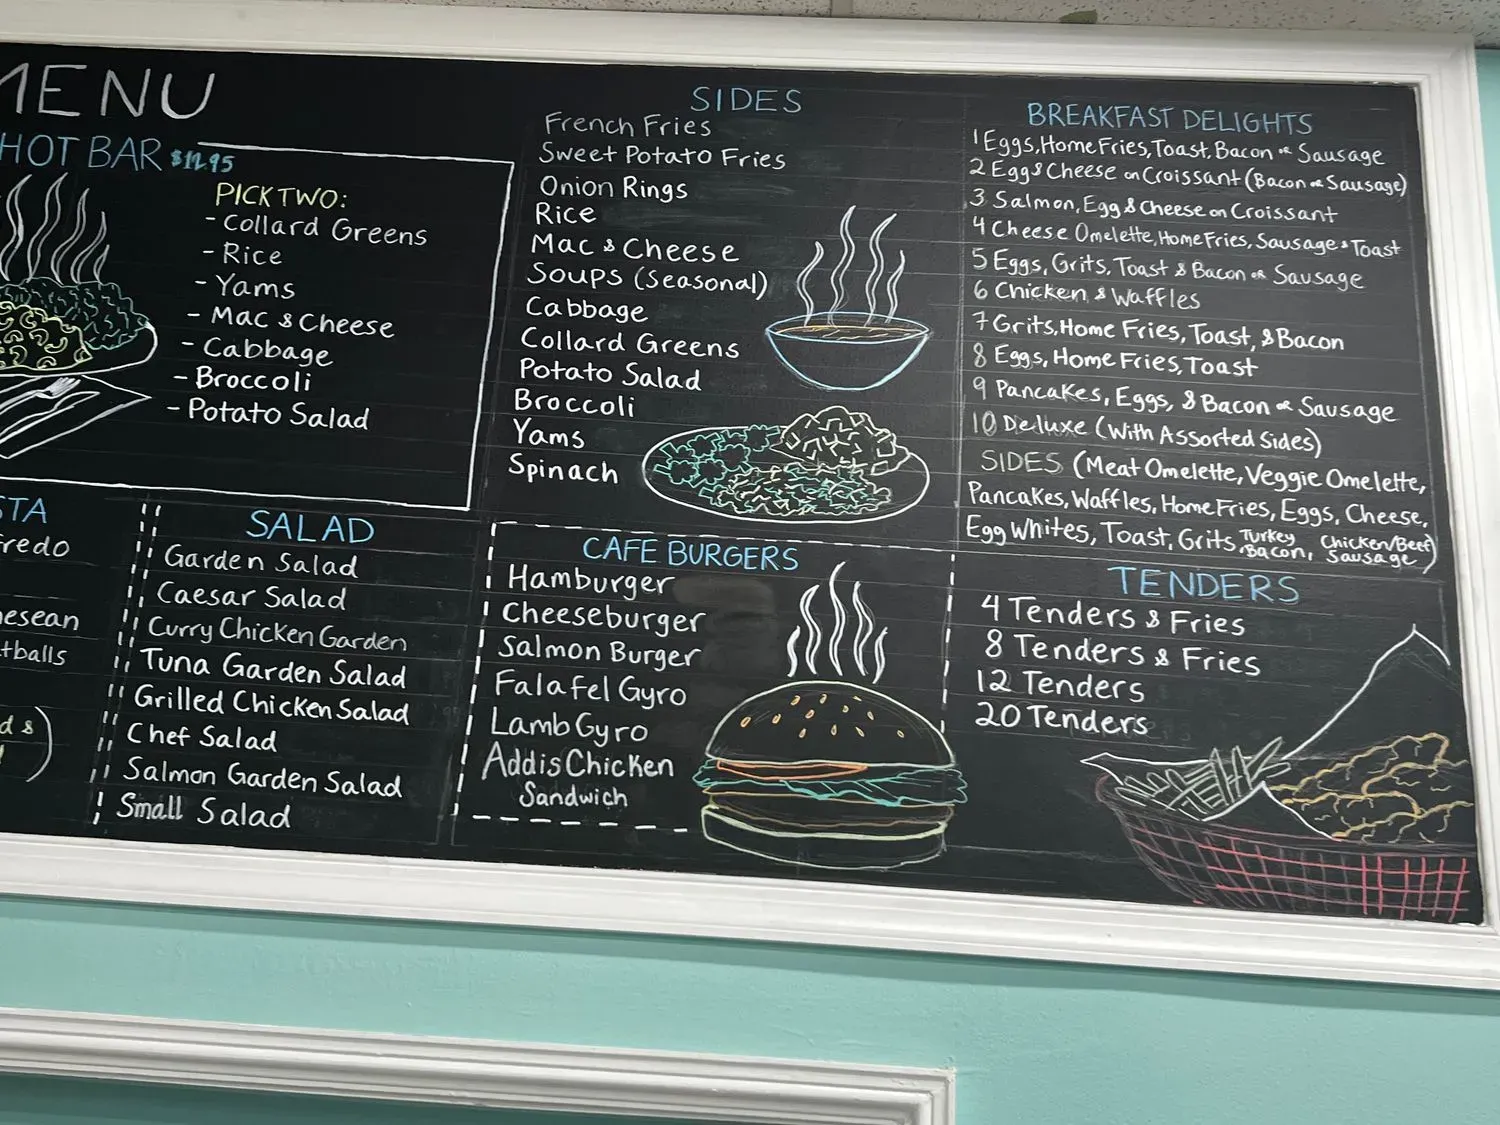 MENU
HOT BAR $12.95
PICK TWO:
- Collard Greens
- Rice
- Yams
- Mac & Cheese
- Cabbage
- Broccoli
- Potato Salad
SIDES
French Fries
Sweet Potato Fries
Onion Rings
Rice
Mac & Cheese
Soups (Seasonal)
Cabbage
Collard Greens
Potato Salad
Broccoli
Yams
Spinach
BREAKFAST DELIGHTS
1 Eggs, Home Fries, Toast, Bacon or Sausage
2 Egg & Cheese on Croissant (Bacon or Sausage)
3 Salmon, Egg & Cheese on Croissant
4 Cheese Omelette, Home Fries, Sausage & Toast
5 Eggs, Grits, Toast & Bacon or Sausage
6 Chicken & Waffles
7 Grits, Home Fries, Toast, & Bacon
8 Eggs, Home Fries, Toast
9 Pancakes, Eggs, & Bacon or Sausage
10 Deluxe (With Assorted Sides)
SIDES (Meat Omelette, Veggie Omelette,
Pancakes, Waffles, Home Fries, Eggs, Cheese,
Egg Whites, Toast, Grits, Turkey Bacon, Chicken/Beef Sausage)
STA
fredo
esean
tballs
d &
SALAD
Garden Salad
Caesar Salad
Curry Chicken Garden
Tuna Garden Salad
Grilled Chicken Salad
Chef Salad
Salmon Garden Salad
Small Salad
CAFE BURGERS
Hamburger
Cheeseburger
Salmon Burger
Falafel Gyro
Lamb Gyro
Addis Chicken
Sandwich
TENDERS
4 Tenders & Fries
8 Tenders & Fries
12 Tenders
20 Tenders